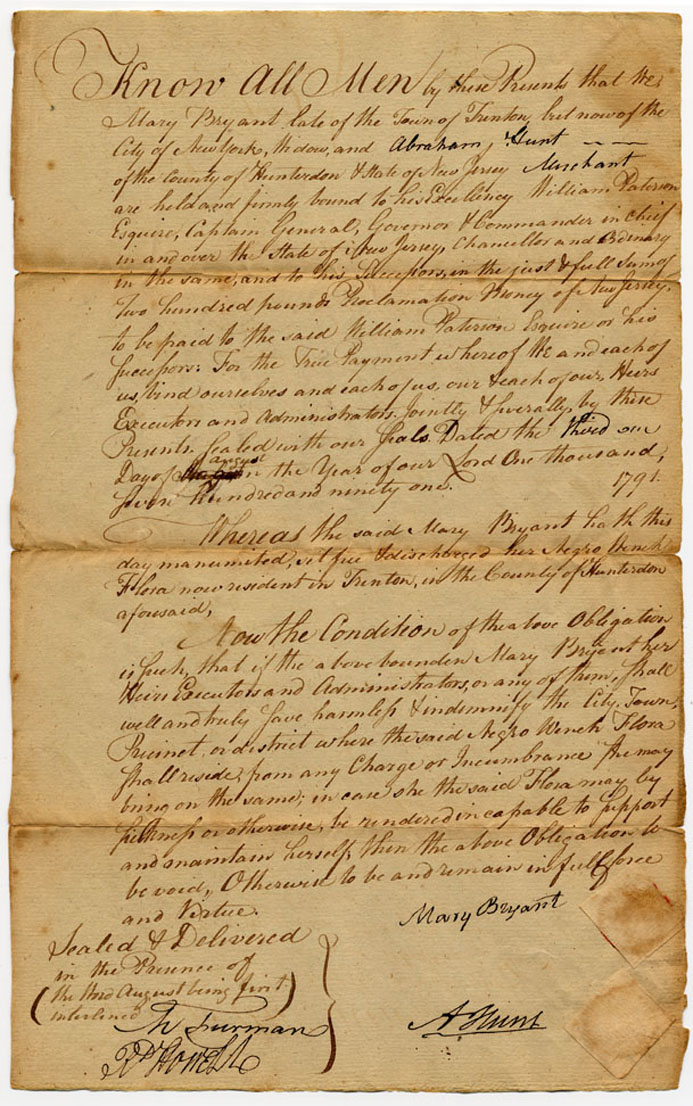 Know All Men by these Presents that We
Mary Bryant late of the Town of Trenton, but now of the
City of New York, Widow, and Abraham Hunt
of the County of Hunterdon & State of New Jersey Merchant
are held and firmly bound to his Excellency William Paterson
Esquire, Captain General, Governor & Commander in Chief
in and over the State of New Jersey, Chancellor and Ordinary
in the same, and to his Successors, in the just & full Sum of
Two hundred pounds Proclamation Money of New Jersey,
to be paid to the said William Paterson Esquire or his
Successors: For the True Payment whereof We and each of
us, bind ourselves and each of us, our & each of our, Heirs
Executors and Administrators Jointly & severally, by these
Presents. Sealed with our Seals. Dated the third
august
Day of in the Year of our Lord One thousand,
seven hundred and ninety one. 1791.
Whereas the said Mary Bryant hath this
day manumitted, set free & discharged her Negro Wench
Flora now resident in Trenton, in the County of Hunterdon
aforesaid,
Now the Condition of the above Obligation
is such, that if the above bounden Mary Bryant her
Heirs Executors and Administrators, or any of them, shall
well and truly save harmless & indemnify the City, Town,
Precinct, or district where the said Negro Wench Flora
shall reside, from any Charge or Incumbrance she may
bring on the same; in case she the said Flora may by
sickness or otherwise, be rendered incapable to support
and maintain herself; then the above Obligation to
be void, Otherwise to be and remain in full force
and Virtue.
Mary Bryant
Sealed & Delivered
in the Presence of
(the word August being first
interlined)
A Hunt
Furman
Howell